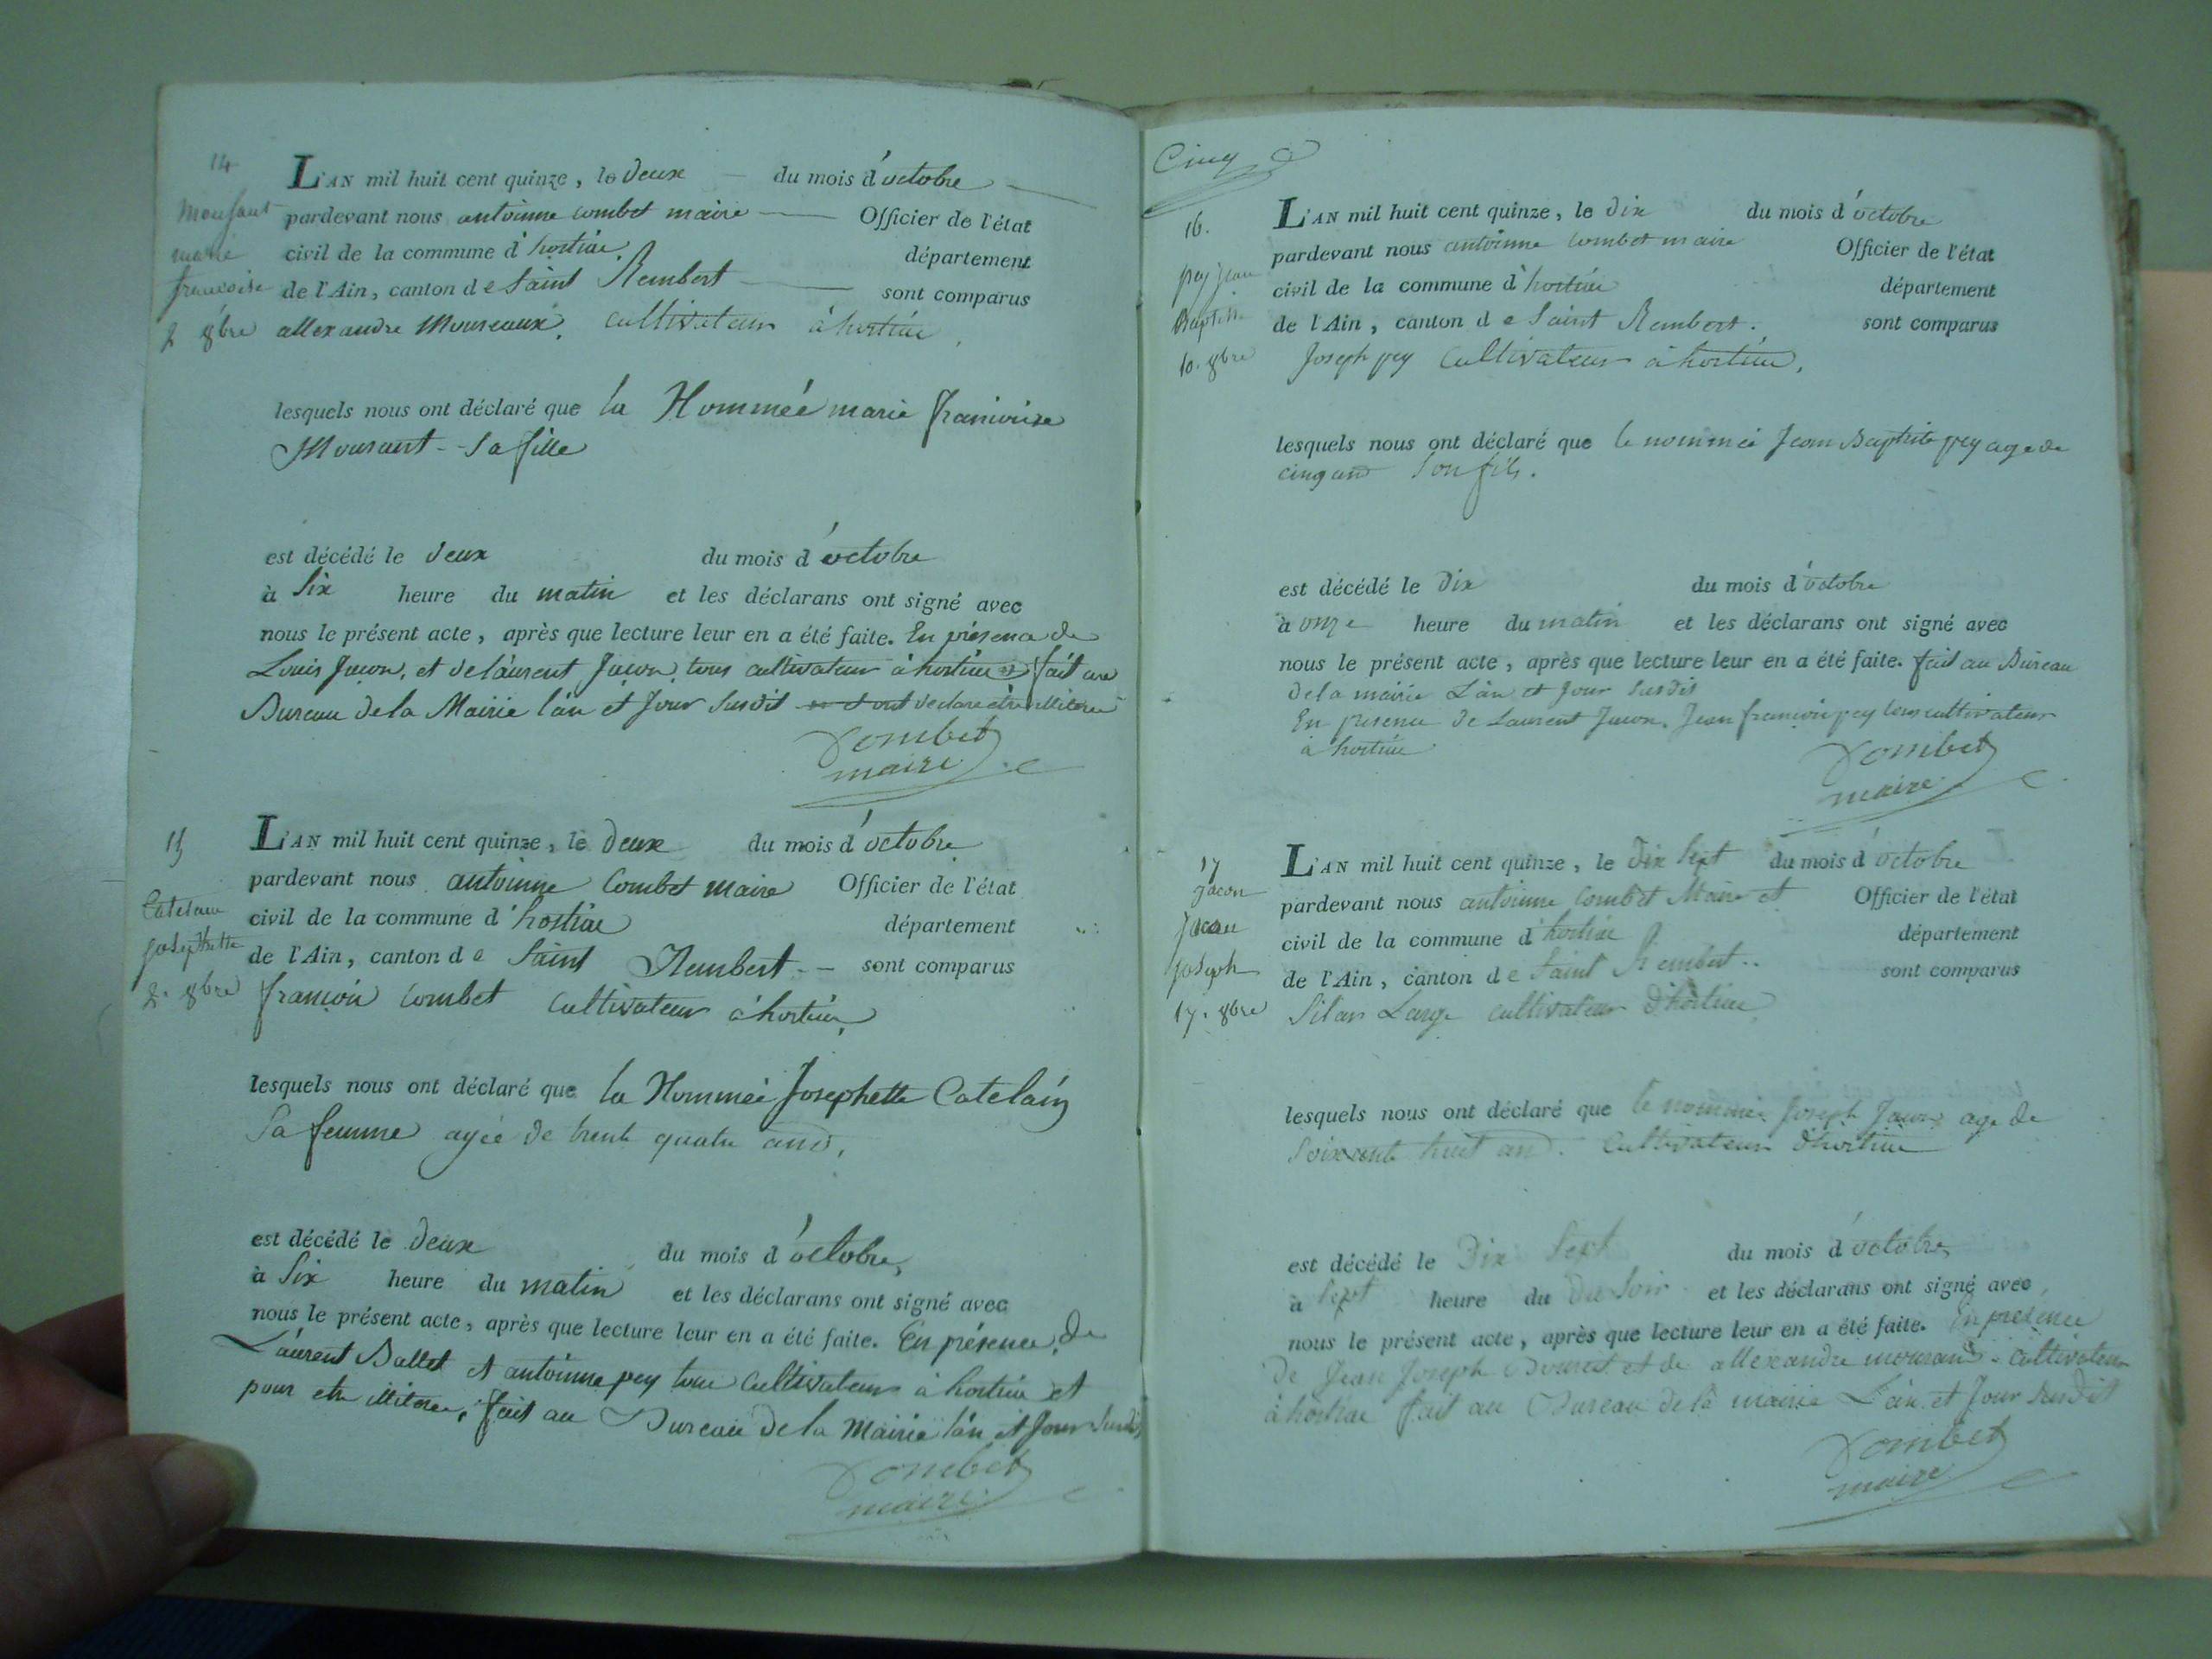 14
L'AN mil huit cent quinze, le deux du mois d'octobre
pardevant nous antoinne combet maire Officier de l'état
civil de la commune d'hostiac département
de l'Ain, canton de Saint Rembert sont comparus
allexandre Moureaux, cultivateur à hostiac
marie
francoise
2 8bre
lesquels nous ont déclaré que la Nommée marie francoise
Mourant - Sa fille
est décédé le deux du mois d'octobre
à Six heure du matin et les déclarans ont signé avec
nous le présent acte, après que lecture leur en a été faite. En présence de
Louis Juson, et de laurent Juson, tous cultivateur à hostiac fait au
Bureau de la Mairie l'an et Jour Susdit et ont déclaré etre illiteré
Combet
maire
15
L'AN mil huit cent quinze, le deux du mois d'octobre
pardevant nous antoinne Combet maire Officier de l'état
civil de la commune d'hostiac département
de l'Ain, canton de Saint Rembert sont comparus
françois combet cultivateur à hostiac,
Catelain
Josephette
2. 8bre
lesquels nous ont déclaré que la Nommée Josephette Catelain
Sa femme agée de trente quatre ans,
est décédé le deux du mois d'octobre,
à Six heure du matin et les déclarans ont signé avec
nous le présent acte, après que lecture leur en a été faite. En présence de
Laurent Ballet et antoinne pey tous cultivateur à hostiac et
pour etre illiteré, fait au Bureau de la Mairie l'an et Jour Susdit
Combet
maire
Cinq
16.
L'AN mil huit cent quinze, le dix du mois d'octobre
pardevant nous antoinne combet maire Officier de l'état
civil de la commune d'hostiac département
de l'Ain, canton de Saint Rembert. sont comparus
Joseph pey cultivateur à hostiac,
pey Jean
Baptiste
10. 8bre
lesquels nous ont déclaré que le nommée Jean Baptiste pey age de
cinq ans Son fils.
est décédé le dix du mois d'octobre
à onze heure du matin et les déclarans ont signé avec
nous le présent acte, après que lecture leur en a été faite. fait au Bureau
de la mairie L'an et Jour Susdit
En presence de Laurent Juson, Jean françois pey tous cultivateur
à hostiac
Combet
maire
17
L'AN mil huit cent quinze, le Dix Sept du mois d'octobre
pardevant nous antoinne combet Maire et Officier de l'état
civil de la commune d'hostiac département
de l'Ain, canton de Saint Rembert.. sont comparus
Silan Large cultivateur d'hostiac
Jacon
Joseph
17. 8bre
lesquels nous ont déclaré que le nommée Joseph Jacon age de
Soixante huit ans. Cultivateur d'hostiac
est décédé le Dix Sept du mois d'octobre
à Sept heure du du Soir et les déclarans ont signé avec
nous le présent acte, après que lecture leur en a été faite. En présence
de Jean Joseph et de allexandre mourand. cultivateur
à hostiac fait au Bureau de la mairie L'an et Jour Susdit
Combet
maire